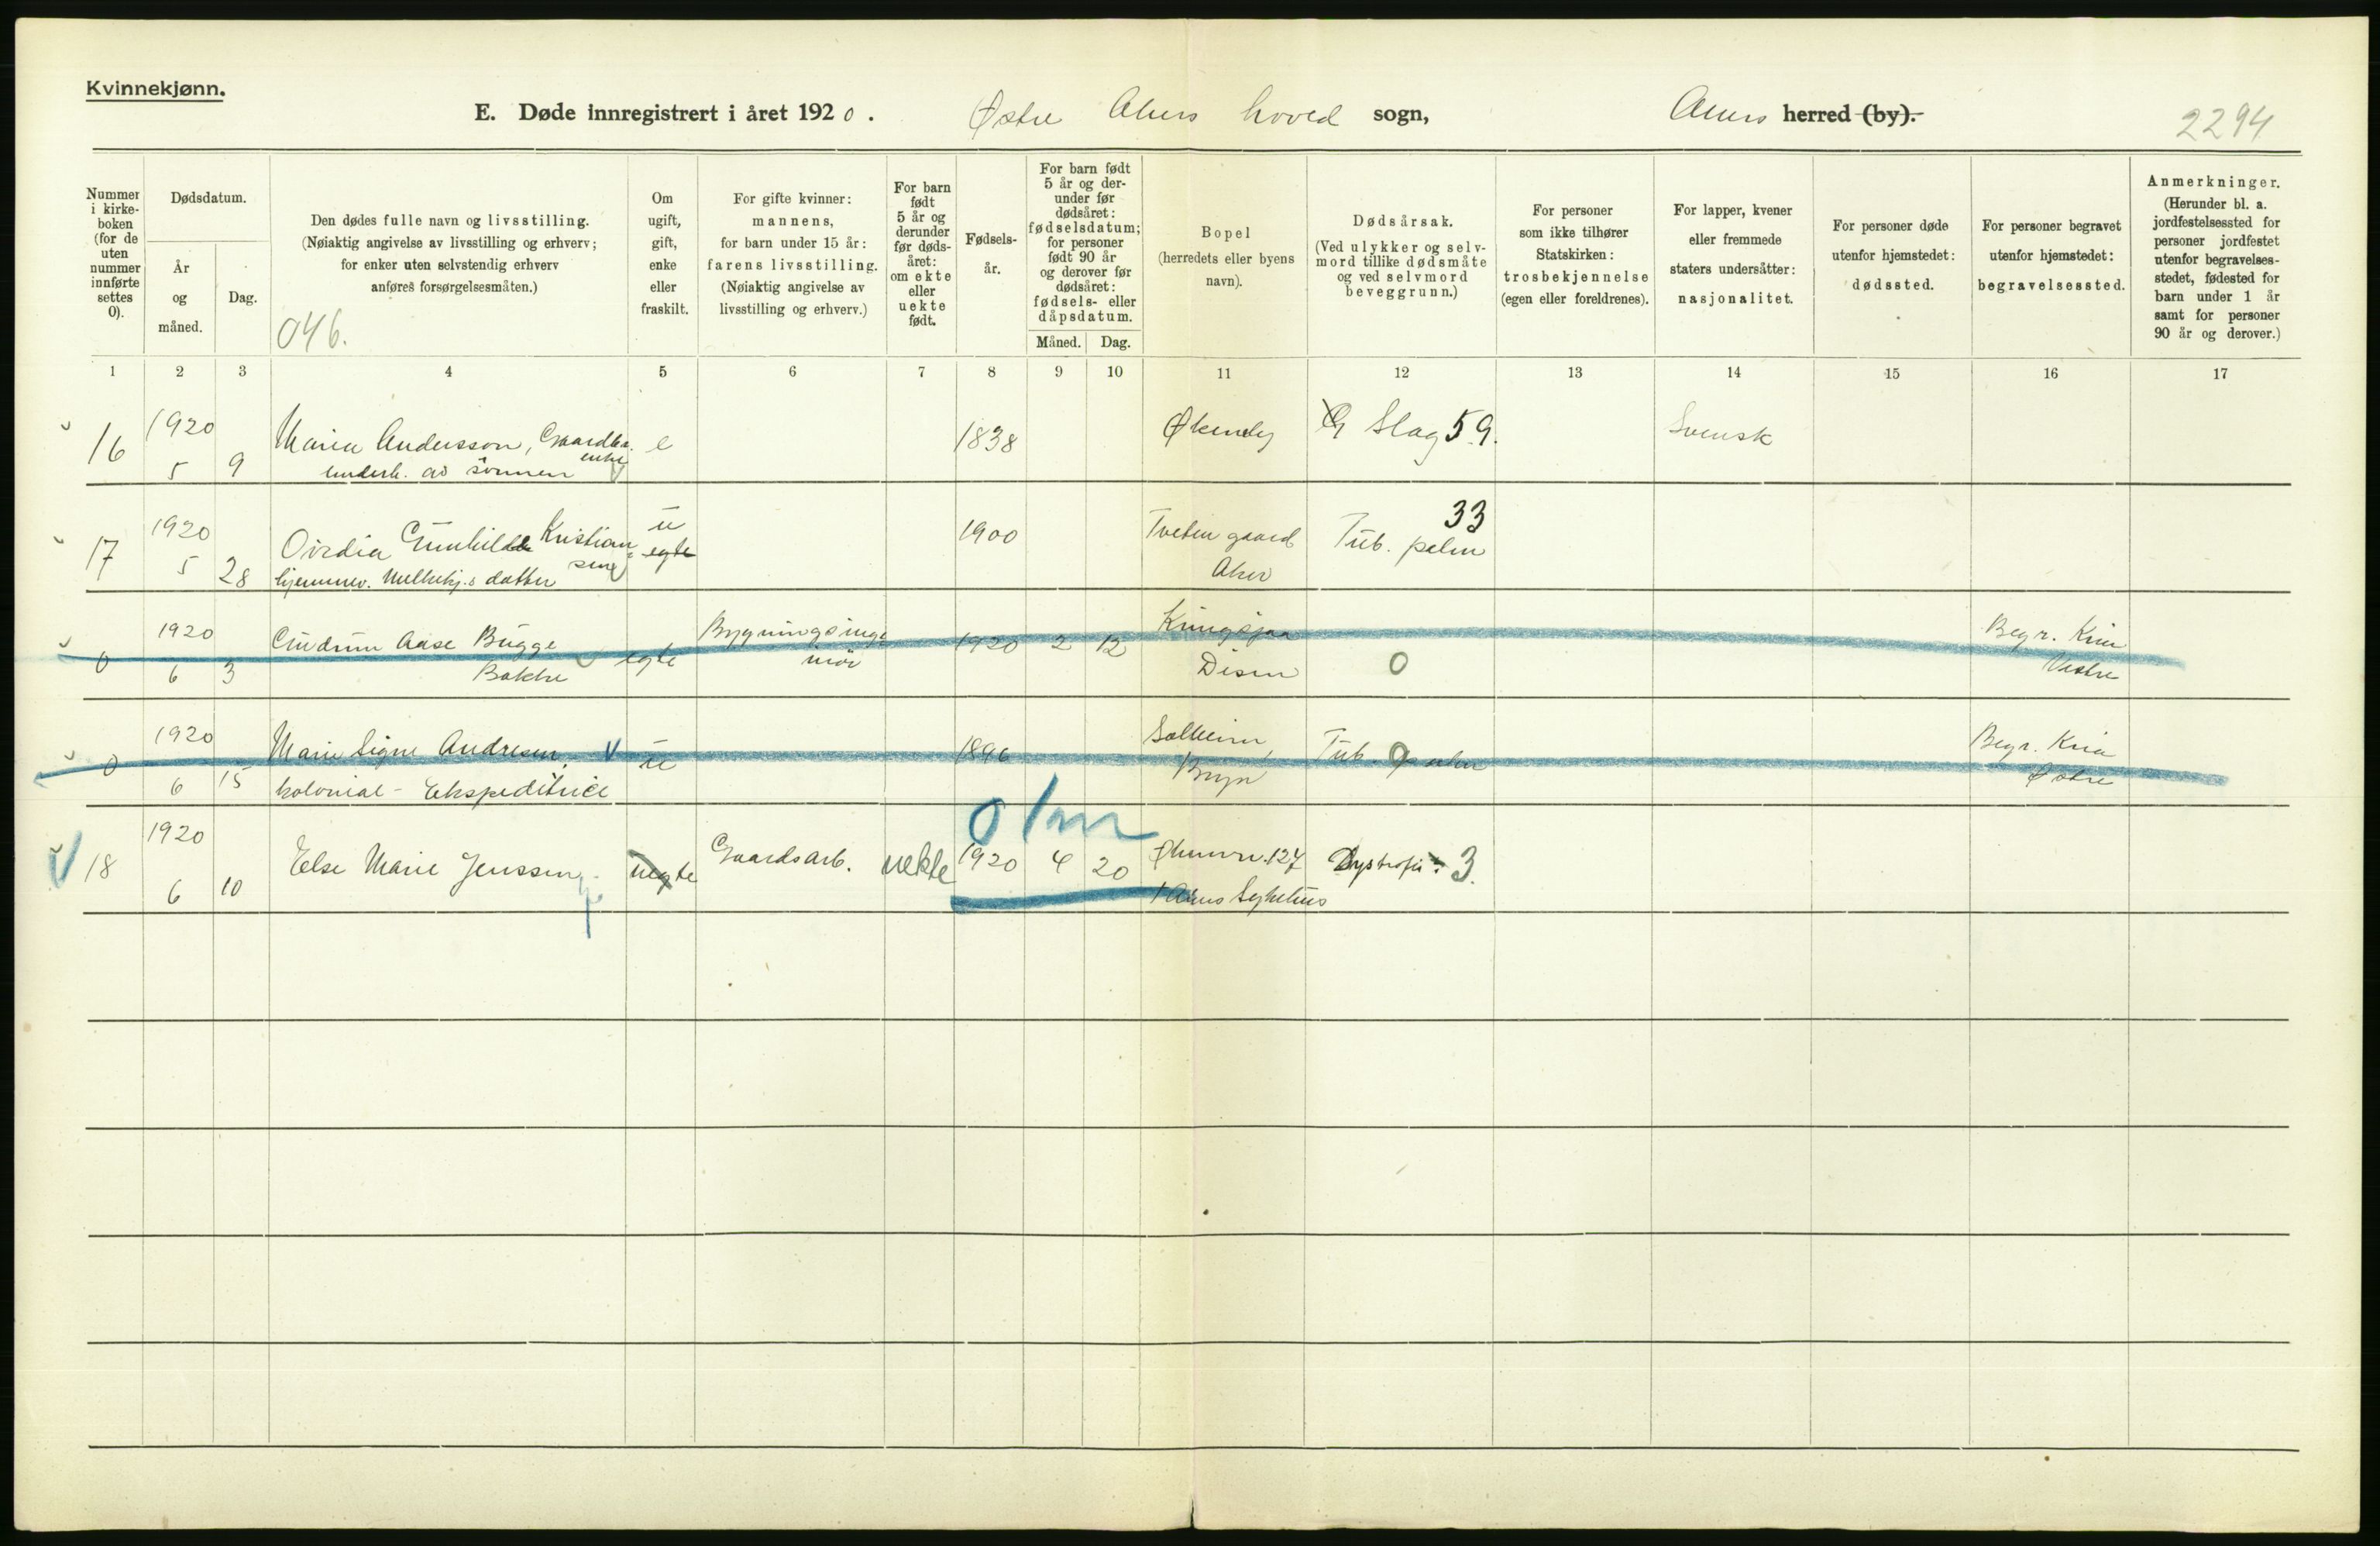 Kvinnekjønn.
E. Døde innregistrert i året 1920. Østre Akers hoved sogn, Akers herred (by).
2294
Nummer i kirke-boken (for de uten nummer innførte settes 0).
Dødsdatum.
År og måned.
Dag.
Den dødes fulle navn og livsstilling.
(Nøiaktig angivelse av livsstilling og erhverv;
for enker uten selvstendig erhverv
anføres forsørgelsesmåten.)
046.
Om ugift, gift, enke eller fraskilt.
For gifte kvinner:
mannens,
for barn under 15 år:
farens livsstilling.
(Nøiaktig angivelse av
livsstilling og erhverv.)
For barn født 5 år og derunder før døds-året: om ekte eller uekte født.
Fødsels-år.
For barn født 5 år og der-under før dødsåret: fødselsdatum; for personer født 90 år og derover før dødsåret: fødsels- eller dåpsdatum.
Måned. Dag.
Bopel
(herredets eller byens
navn).
Dødsårsak.
(Ved ulykker og selv-
mord tillike dødsmåte
og ved selvmord
beveggrunn.)
For personer
som ikke tilhører
Statskirken:
trosbekjennelse
(egen eller foreldrenes).
For lapper, kvener
eller fremmede
staters undersåtter:
nasjonalitet.
For personer døde
utenfor hjemstedet:
dødssted.
For personer begravet
utenfor hjemstedet:
begravelsessted.
Anmerkninger.
(Herunder bl. a.
jordfestelsessted for
personer jordfestet
utenfor begravelses-
stedet, fødested for
barn under 1 år
samt for personer
90 år og derover.)
1 2 3 4 5 6 7 8 9 10 11 12 13 14 15 16 17
16 1920 5 9 Maria Andersson, Gaardbr. enke e 1838 Slag 59. Svensk
underh. av sønnen
17 1920 5 28 Ovidia Gunhilde Kristian= sen u egte 1900 Tveten gaard Tub. pulm 33
hjemmev. Melkekj.s datter Aker
0 1920 6 3 Gudrun Aase Bugge egte Bygningsinge 1920 2 12 0 Begr. Kria
Bakke niør Disen Vestre
0 1920 6 15 Marie Signe Andresen, u 1896 Solheim, Tub. pulm 0 Begr. Kria
kolonial-Ekspeditrice Bryn Østre
0 1 m
18 1920 6 10 Else Marie Jenssen uegte Gaardsarb. uekte 1920 4 20 Økernv. 127 Dystrofi 3.
Akers Sykehus